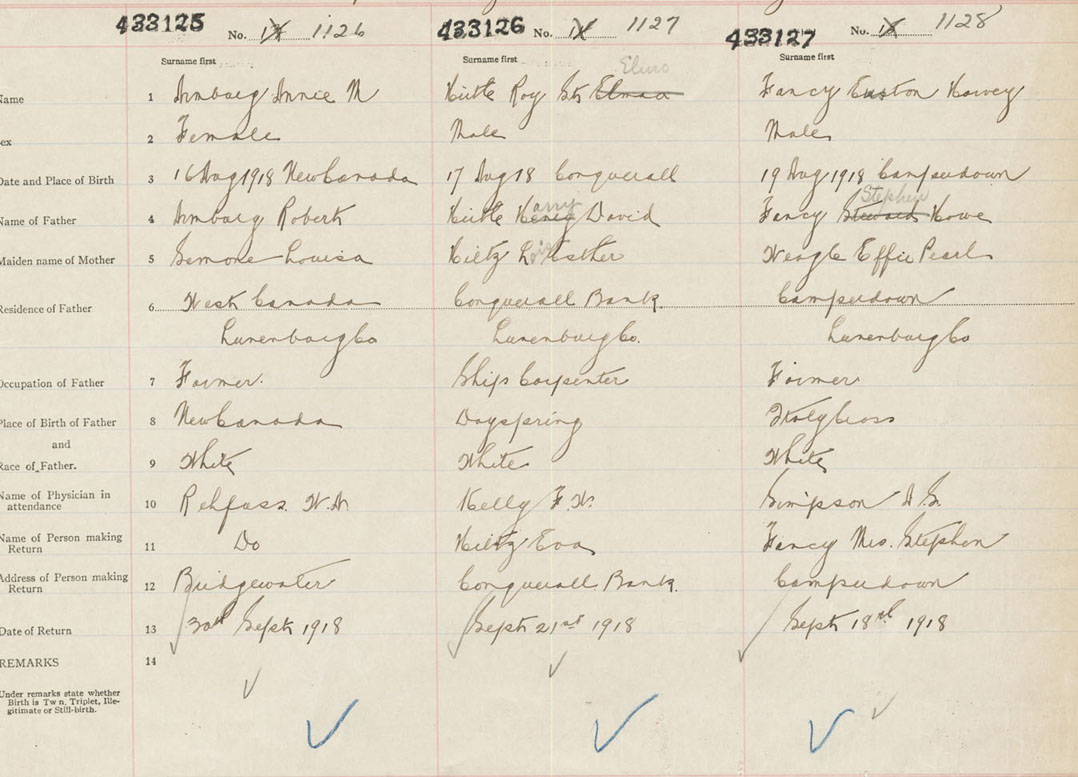 433125 No. 1126 433126 No. 1127 433127 No. 1128
Surname first Surname first Surname first
Name 1 Armburg Annie M Hirtle Roy St Elmo Fancy Euston Harvey
Sex 2 Female Male Male
Date and Place of Birth 3 16 Aug 1918 New Canada 17 Aug 18 Conquerall 19 Aug 1918 Camperdown
Stephen
Name of Father 4 Armburg Robert Hirtle Harry David Fancy Howe
Maiden name of Mother 5 Louisa Hiltz Esther Weagle Effie Pearl
Residence of Father 6 West Canada Conquerall Bank Camperdown
Lunenburg Co Lunenburg Co. Lunenburg Co
Occupation of Father 7 Farmer. Ship Carpenter Farmer
Place of Birth of Father 8 New Canada Dayspring
and
Race of Father. 9 White White White
Name of Physician in
attendance 10 Rehfuss W.N Kelly F.W. Simpson
Name of Person making
Return 11 Do Hiltz Eva Fancy Mrs. Stephen
Address of Person making
Return 12 Bridgewater Conquerall Bank. Camperdown
Date of Return 13 30th Sept 1918 Sept 21st 1918 Sept 18th 1918
REMARKS 14
Under remarks state whether
Birth is Twin, Triplet, Ille-
gitimate or Still-birth.